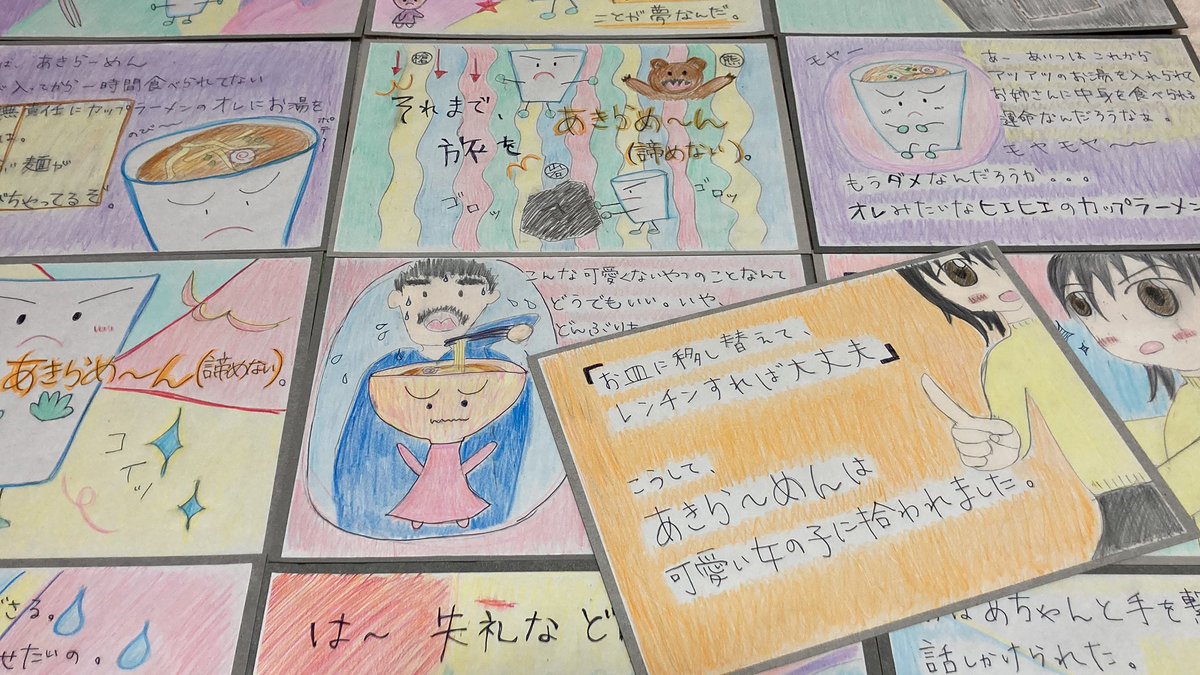 ことが夢なんだ。
は、あきらーめん
入ってから一時間食べられてない
無責任にカップラーメンのオレにお湯を
のび〜
麺が
ちゃってるぞ。
それまで、
旅を
あきらめ〜ん
(諦めない)。
熊
ゴロッ
ゴロッ
モヤー
あー あいつは これから
アツアツのお湯を入れられて
お姉さんに中身を食べられる
運命なんだろうなぁ。
モヤ モヤ〜〜
もうダメなんだろうか...
オレみたいなヒエヒエのカップラーメン
あきらめ〜ん(諦めない)。
コイッ
こんな可愛くないやつのことなんて
どうでもいい。いや、
どんぶり
「お皿に移し替えて、
レンチンすれば大丈夫」
こうして、
あきら〜めんは
可愛い女の子に拾われました。
ざる。
せだいの。
は〜 失礼な ど
めちゃんと手を
話しかけられた。